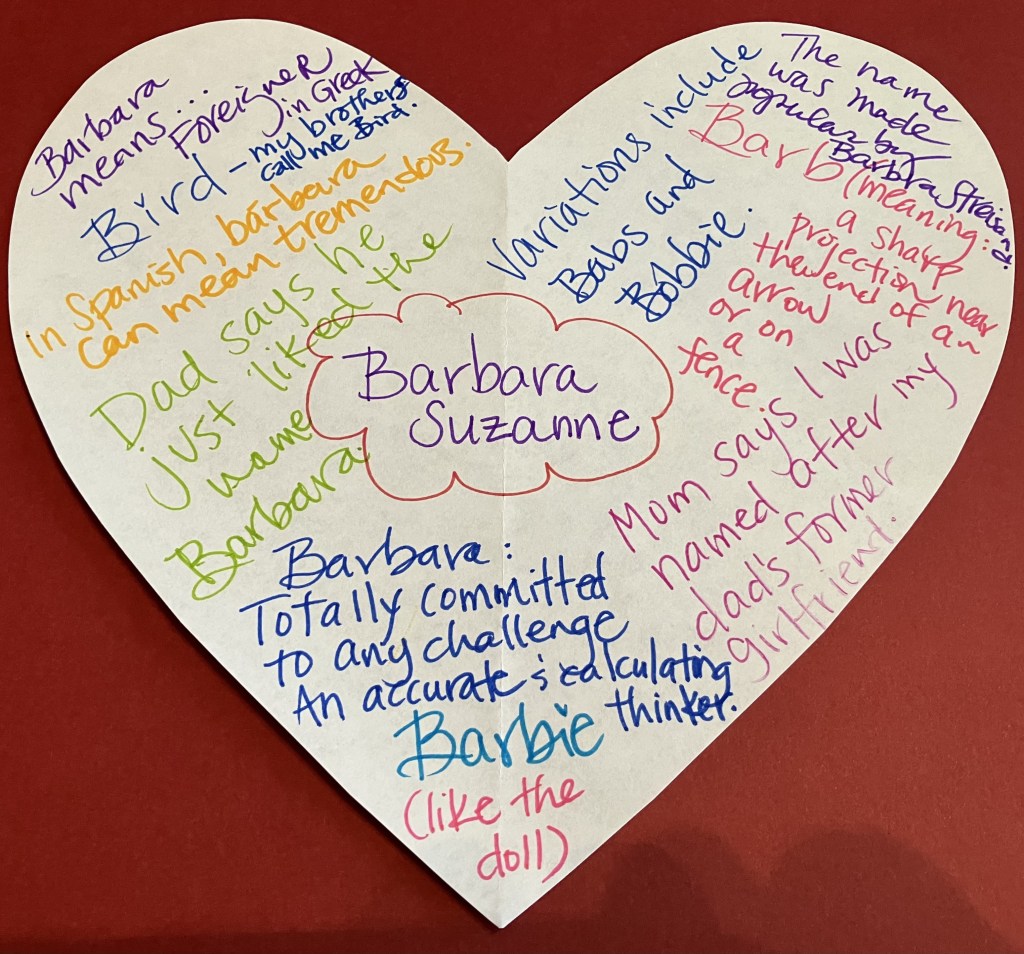 Barbara
means...
Foreigner
in Greek
Bird - my brothers
call me Bird.
in Spanish, bárbara
can mean tremendous.
Dad says he
just liked the
name
Barbara.
Variations include
Babs and
Bobbie.
The name
was made
popular by
Barbra Streisand.
Barb (meaning:
a sharp
projection near
the end of an
arrow
or on
a
fence.
Mom says I was
named after my
dad's former
girlfriend.
Barbara
Suzanne
Barbara:
Totally committed
to any challenge
An accurate & calculating
thinker.
Barbie
(like the
doll)